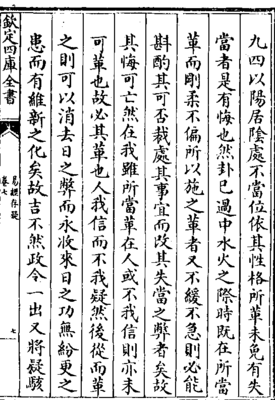 九四以陽居陰處不當位依其性格所革未免有失
當者是有悔也然卦已過中水火之際時既在所當
革而剛柔不偏所以施之革者又不緩不急則必能
斟酌其可否裁處其事宜而改其失當之弊者矣故
其悔可亡然在我雖所當革在人或不我信則亦未
可革也故必其革也人我信而不我疑然後從而革
之則可以消去日之弊而永收來日之功無紛更之
患而有維新之化矣故吉不然政令一出又將疑駭
欽定四庫全書
易經存疑
卷七
七